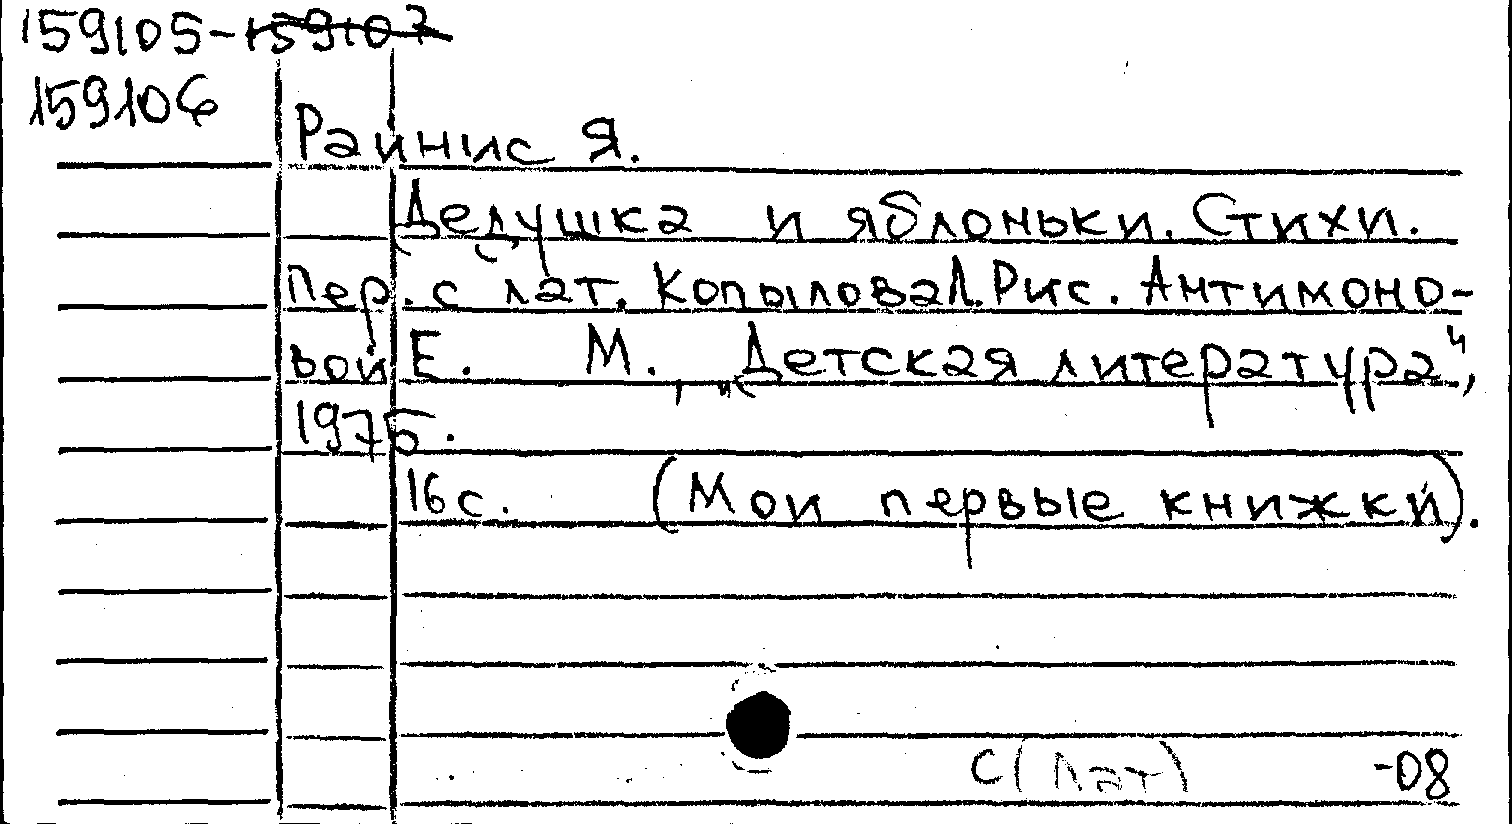 159105-159107
159106
Райнис Я.
Дедушка и яблоньки. Стихи.
Пер. с лат. Копылова Л. Рис. Антимоно-
вой Е. М., "Детская литература",
1975.
16 с. (Мои первые книжки).
С (Лат) -08